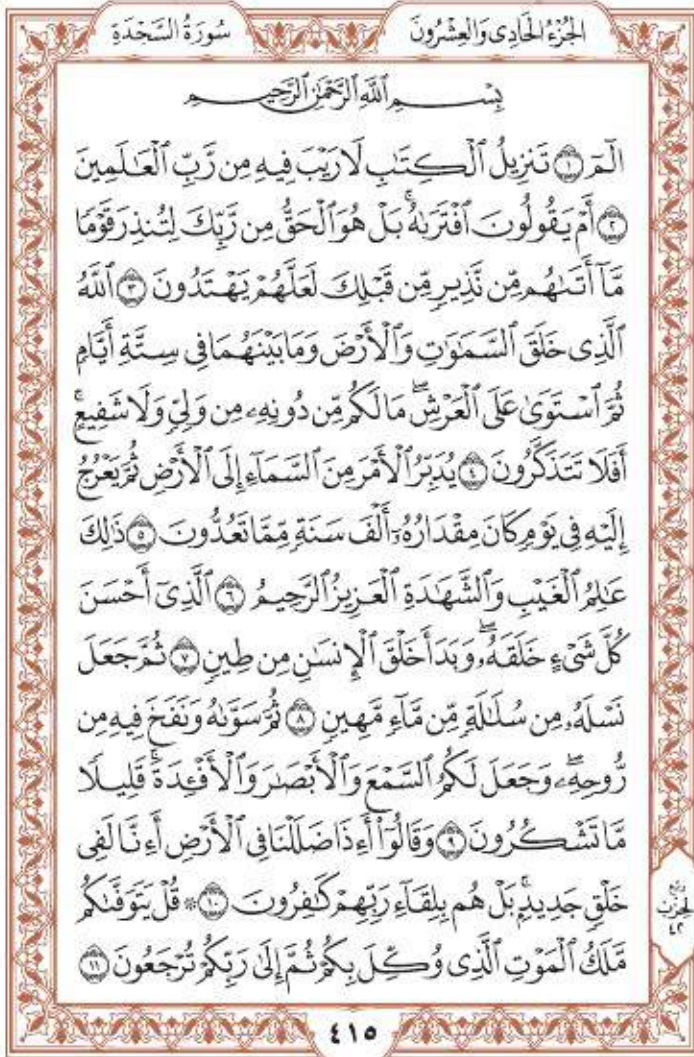 سُورَةُ السَّجْدَةِ
الجُزْءُ الحَادِى وَالعِشْرُونَ
بِسْمِ ٱللَّهِ ٱلرَّحْمَٰنِ ٱلرَّحِيمِ
الٓمٓ ١ تَنزِيلُ ٱلْكِتَٰبِ لَا رَيْبَ فِيهِ مِن رَّبِّ ٱلْعَٰلَمِينَ
٢ أَمْ يَقُولُونَ ٱفْتَرَىٰهُۚ بَلْ هُوَ ٱلْحَقُّ مِن رَّبِّكَ لِتُنذِرَ قَوْمًا
مَّآ أَتَىٰهُم مِّن نَّذِيرٍ مِّن قَبْلِكَ لَعَلَّهُمْ يَهْتَدُونَ ٣ ٱللَّهُ
ٱلَّذِى خَلَقَ ٱلسَّمَٰوَٰتِ وَٱلْأَرْضَ وَمَا بَيْنَهُمَا فِى سِتَّةِ أَيَّامٍ
ثُمَّ ٱسْتَوَىٰ عَلَى ٱلْعَرْشِۖ مَا لَكُم مِّن دُونِهِۦ مِن وَلِىٍّ وَلَا شَفِيعٍۚ
أَفَلَا تَتَذَكَّرُونَ ٤ يُدَبِّرُ ٱلْأَمْرَ مِنَ ٱلسَّمَآءِ إِلَى ٱلْأَرْضِ ثُمَّ يَعْرُجُ
إِلَيْهِ فِى يَوْمٍ كَانَ مِقْدَارُهُۥٓ أَلْفَ سَنَةٍ مِّمَّا تَعُدُّونَ ٥ ذَٰلِكَ
عَٰلِمُ ٱلْغَيْبِ وَٱلشَّهَٰدَةِ ٱلْعَزِيزُ ٱلرَّحِيمُ ٦ ٱلَّذِىٓ أَحْسَنَ
كُلَّ شَىْءٍ خَلَقَهُۥۖ وَبَدَأَ خَلْقَ ٱلْإِنسَٰنِ مِن طِينٍ ٧ ثُمَّ جَعَلَ
نَسْلَهُۥ مِن سُلَٰلَةٍ مِّن مَّآءٍ مَّهِينٍ ٨ ثُمَّ سَوَّىٰهُ وَنَفَخَ فِيهِ مِن
رُّوحِهِۦۖ وَجَعَلَ لَكُمُ ٱلسَّمْعَ وَٱلْأَبْصَٰرَ وَٱلْأَفْـِٔدَةَۚ قَلِيلًا
مَّا تَشْكُرُونَ ٩ وَقَالُوٓا۟ أَءِذَا ضَلَلْنَا فِى ٱلْأَرْضِ أَءِنَّا لَفِى
خَلْقٍ جَدِيدٍۭۚ بَلْ هُم بِلِقَآءِ رَبِّهِمْ كَٰفِرُونَ ١٠ ۞ قُلْ يَتَوَفَّىٰكُم
مَّلَكُ ٱلْمَوْتِ ٱلَّذِى وُكِّلَ بِكُمْ ثُمَّ إِلَىٰ رَبِّكُمْ تُرْجَعُونَ ١١
رُبع
الحِزْب
٤٢
٤١٥